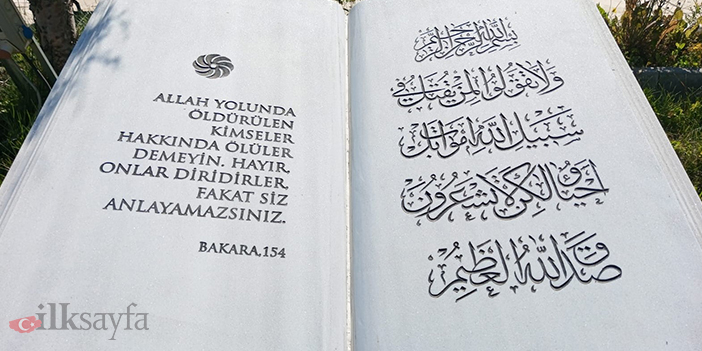 ALLAH YOLUNDA
ÖLDÜRÜLEN
KİMSELER
HAKKINDA ÖLÜLER
DEMEYİN. HAYIR,
ONLAR DİRİDİRLER,
FAKAT SİZ
ANLAYAMAZSINIZ.
BAKARA,154
بسم الله الرحمن الرحيم
ولا تقولوا لمن يقتل في
سبيل الله اموات بل
احياء ولكن لا تشعرون
صدق الله العظيم
ilksayfa